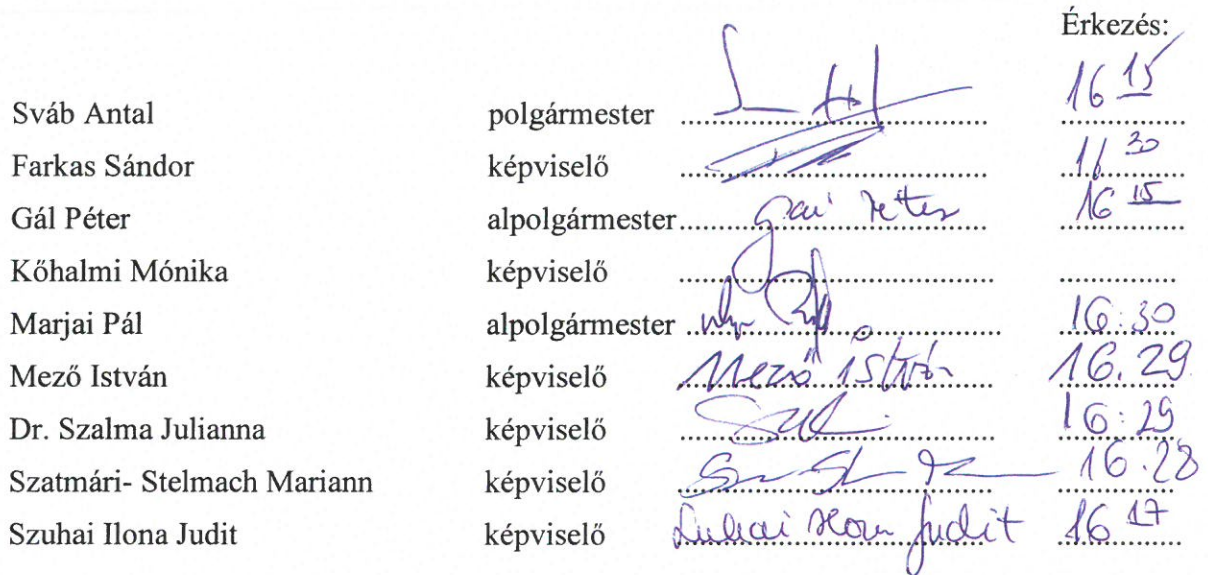 Érkezés:
Sváb Antal polgármester ........................ 16 15
Farkas Sándor képviselő ........................ 30
Gál Péter alpolgármester ........................ Gál Péter 16 15
Kőhalmi Mónika képviselő ........................ ............
Marjai Pál alpolgármester ........................ 16:30
Mező István képviselő Mező István 16.29
Dr. Szalma Julianna képviselő ........................ 16:29
Szatmári- Stelmach Mariann képviselő ........................ 16.28
Szuhai Ilona Judit képviselő Szuhai Ilona Judit 16 17